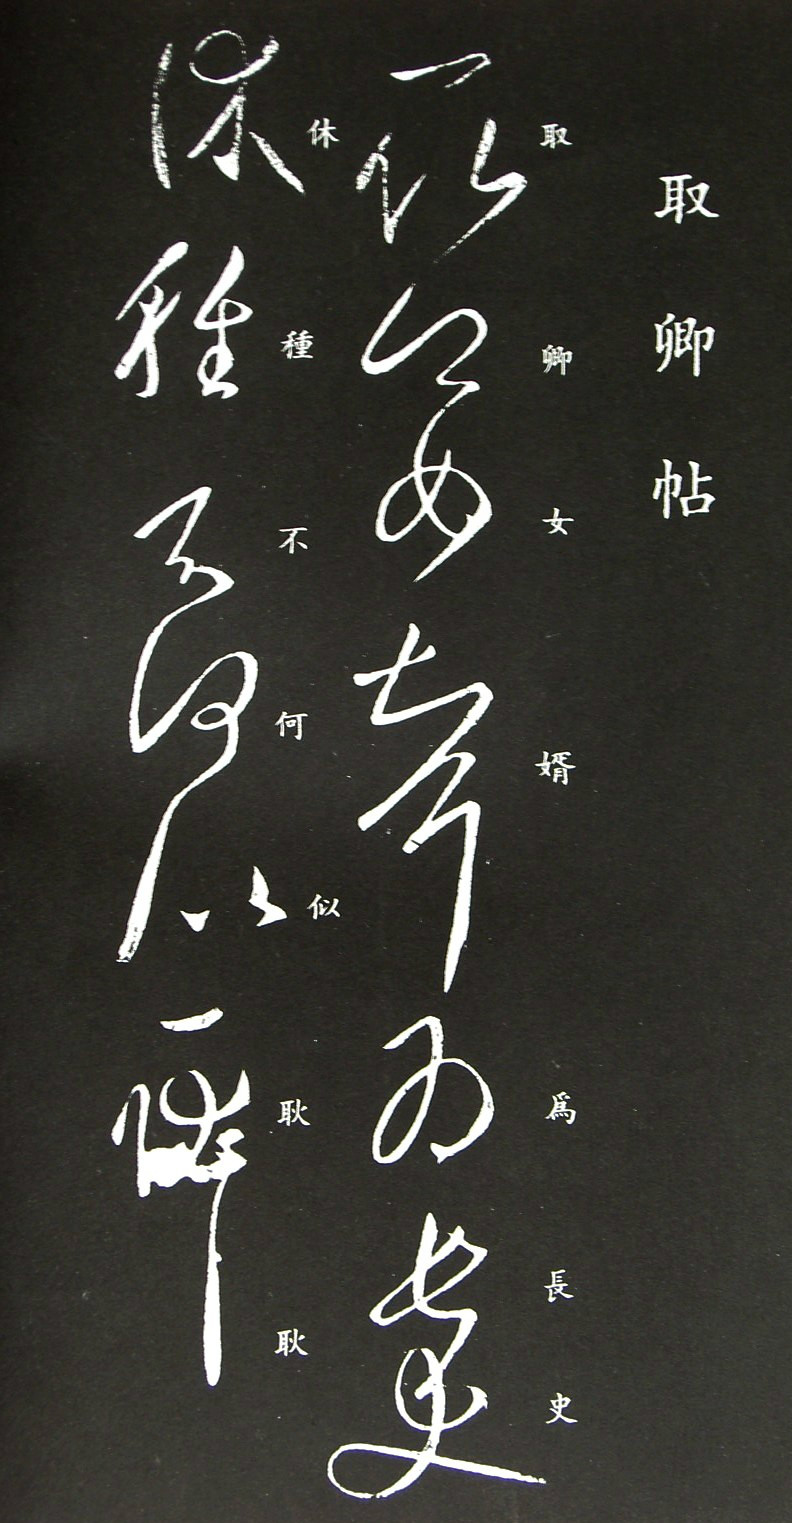 取卿帖
取卿女婿爲長史
休種不何似耿耿